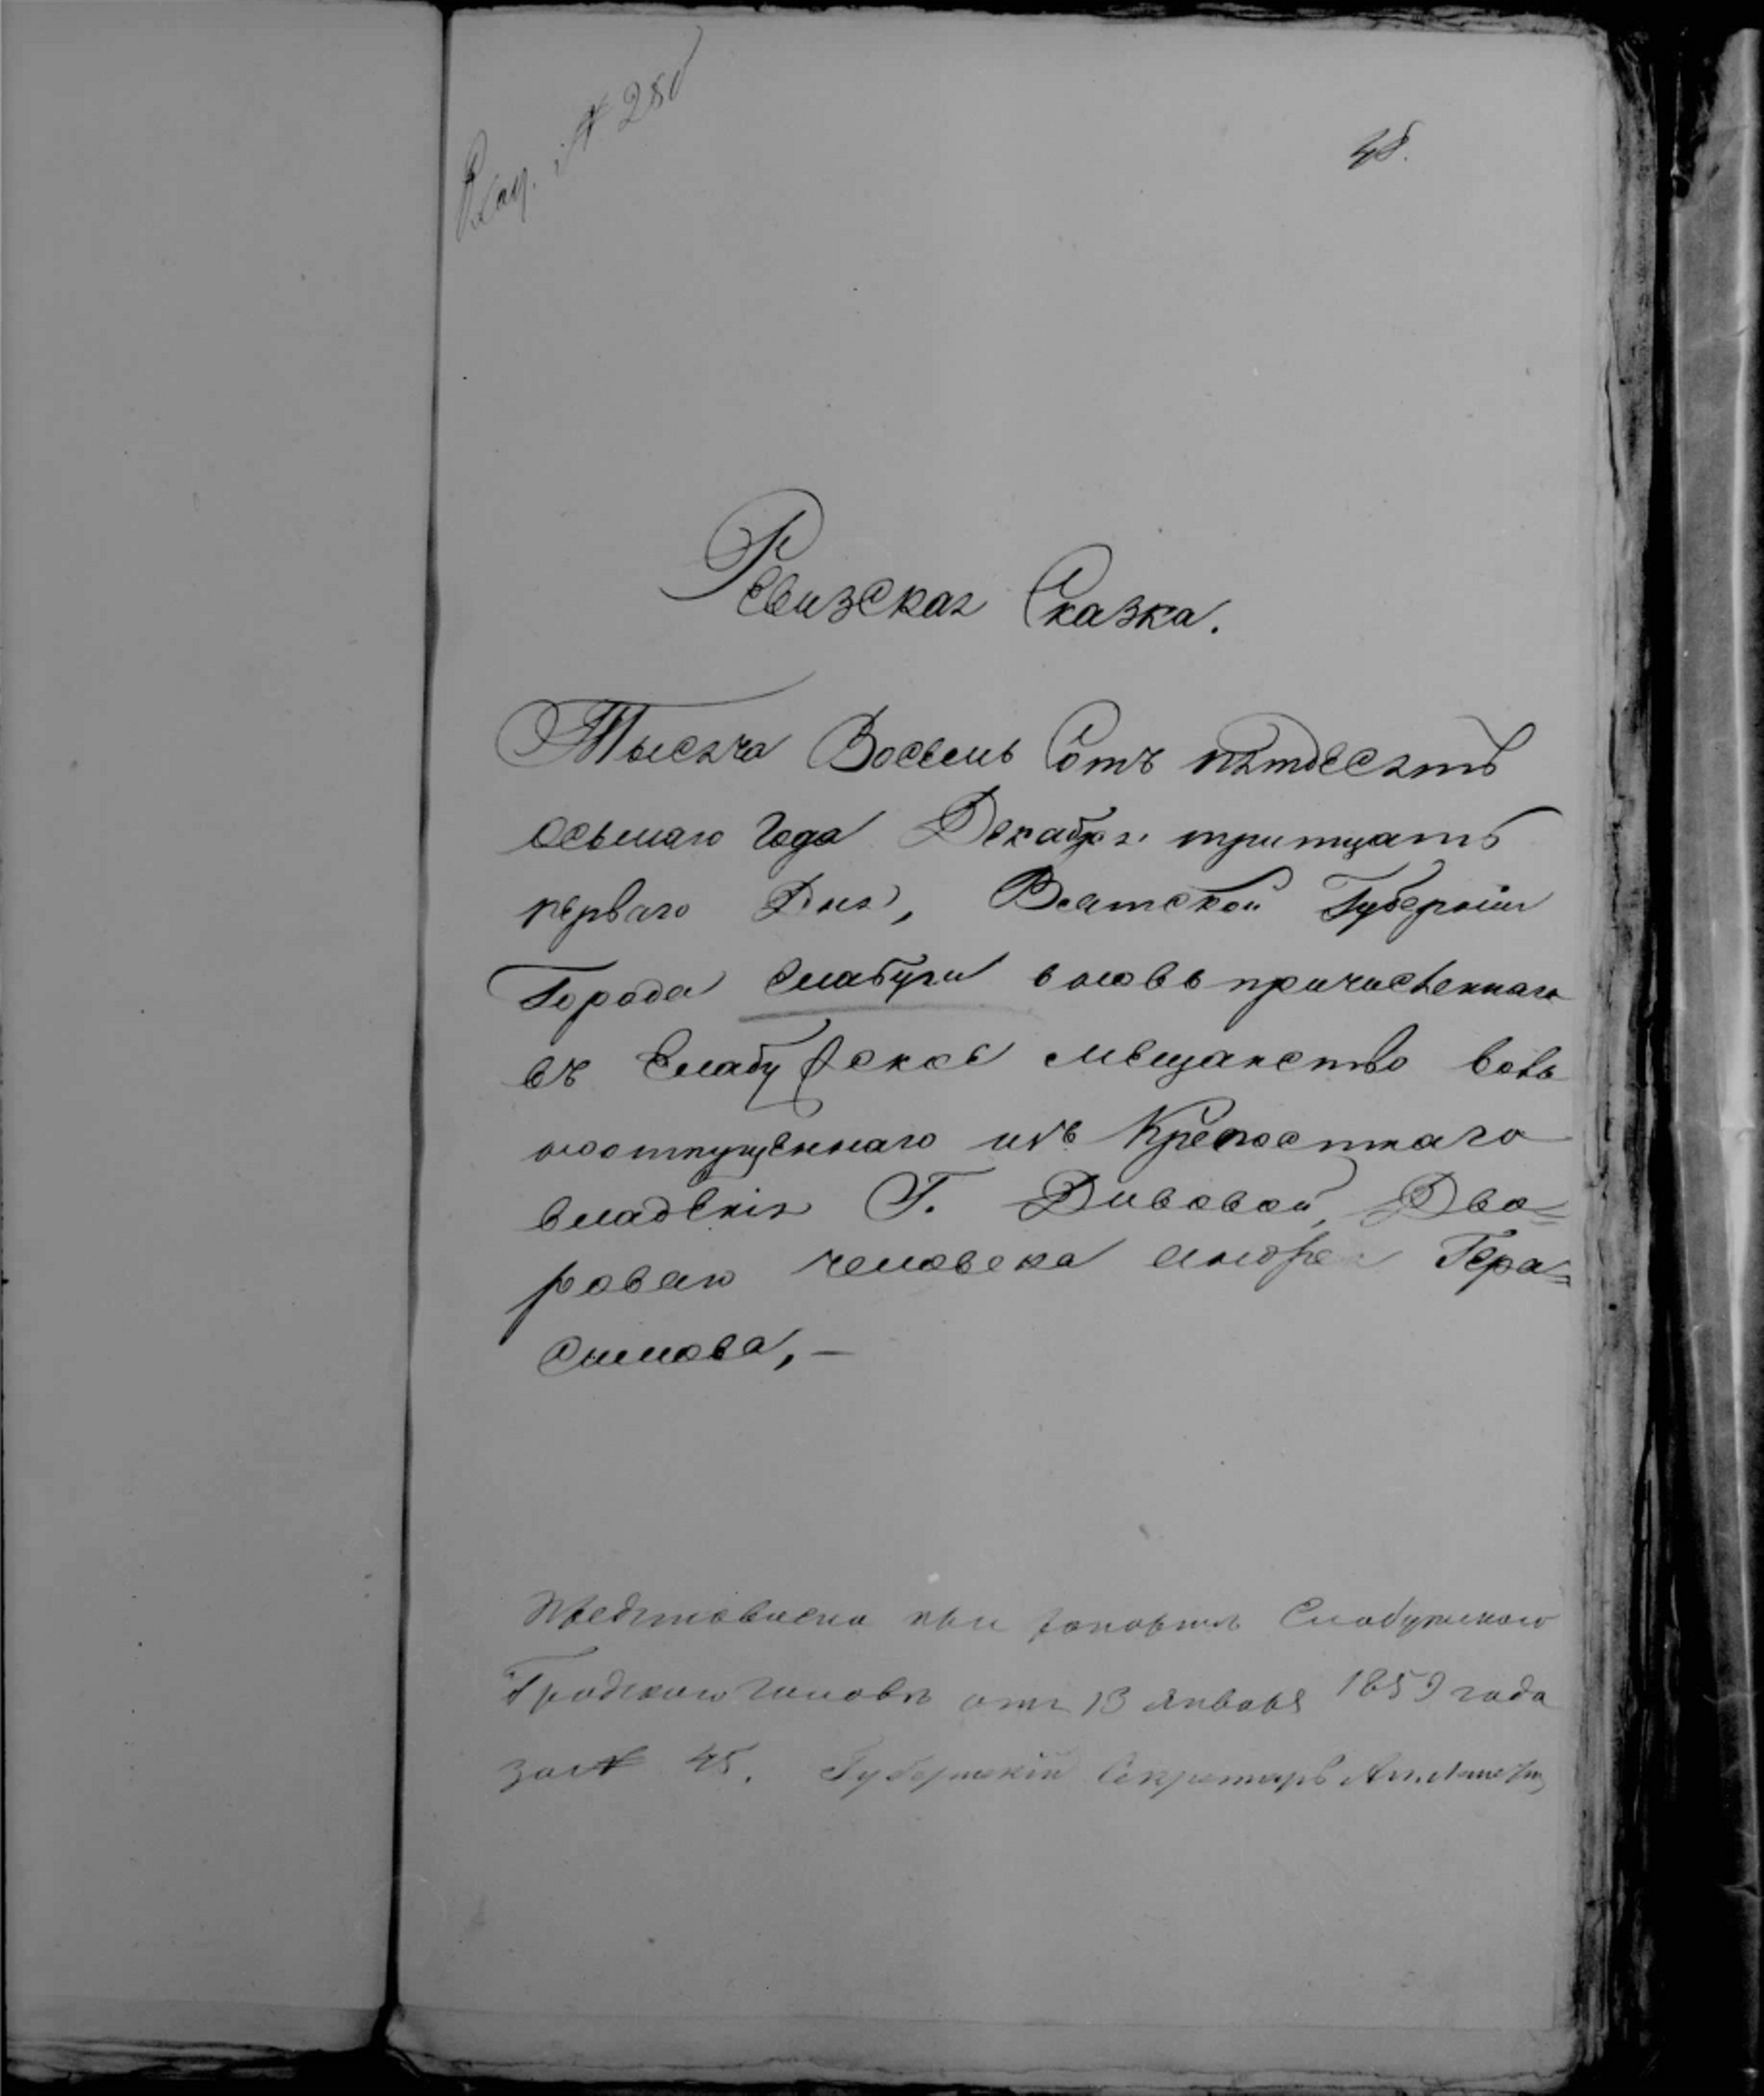 № 280
48.
Ревизская Сказка.
Тысяча Восемь Сотъ пятдесятъ
осьмаго Года Декабря тритцать
перваго Дня, Вятской Губерніи
Города Елабуги вновь причисленнаго
въ Елабужское мѣщанство
изъ Крепостнаго
владѣнія Г. Дивовой, Дво=
роваго человека Андрея Гера=
симова, —
Представлена при рапортѣ Елабужскаго
Градскаго Головы отъ 13 Января 1859 года
за № 45. Губернскій Секретарь